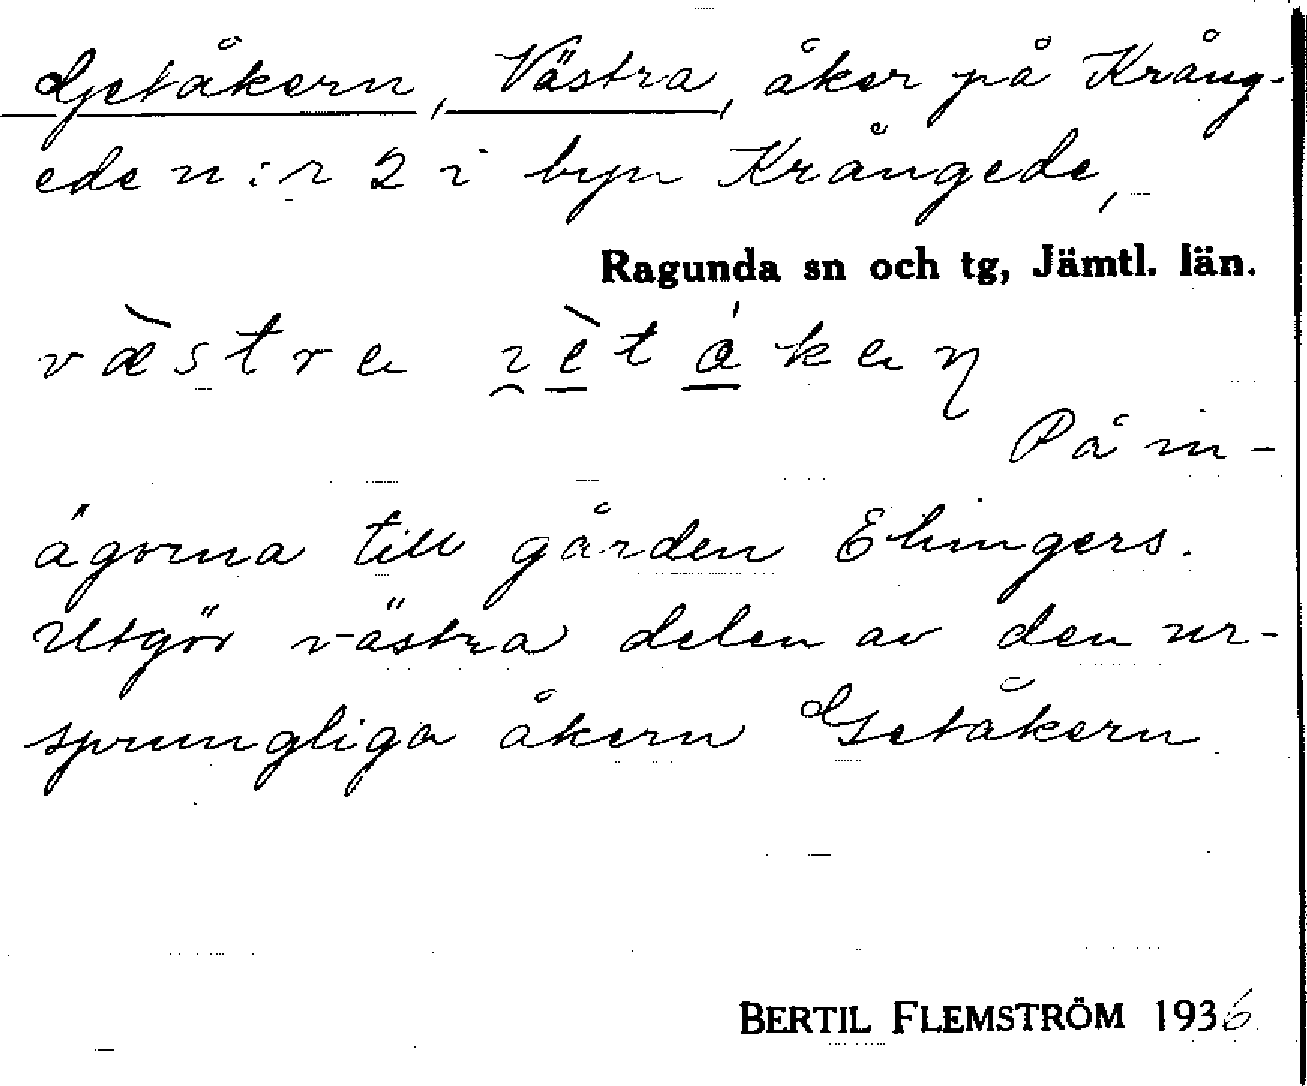 Getåkern, Västra, åker på Krång-
ede n:r 2 i byn Krångede,
Ragunda sn och tg, Jämtl. län.
På in-
ägorna till gården Ehingers.
Utgör västra delen av den ur-
sprungliga åkern Getåkern.
BERTIL FLEMSTRÖM 1936